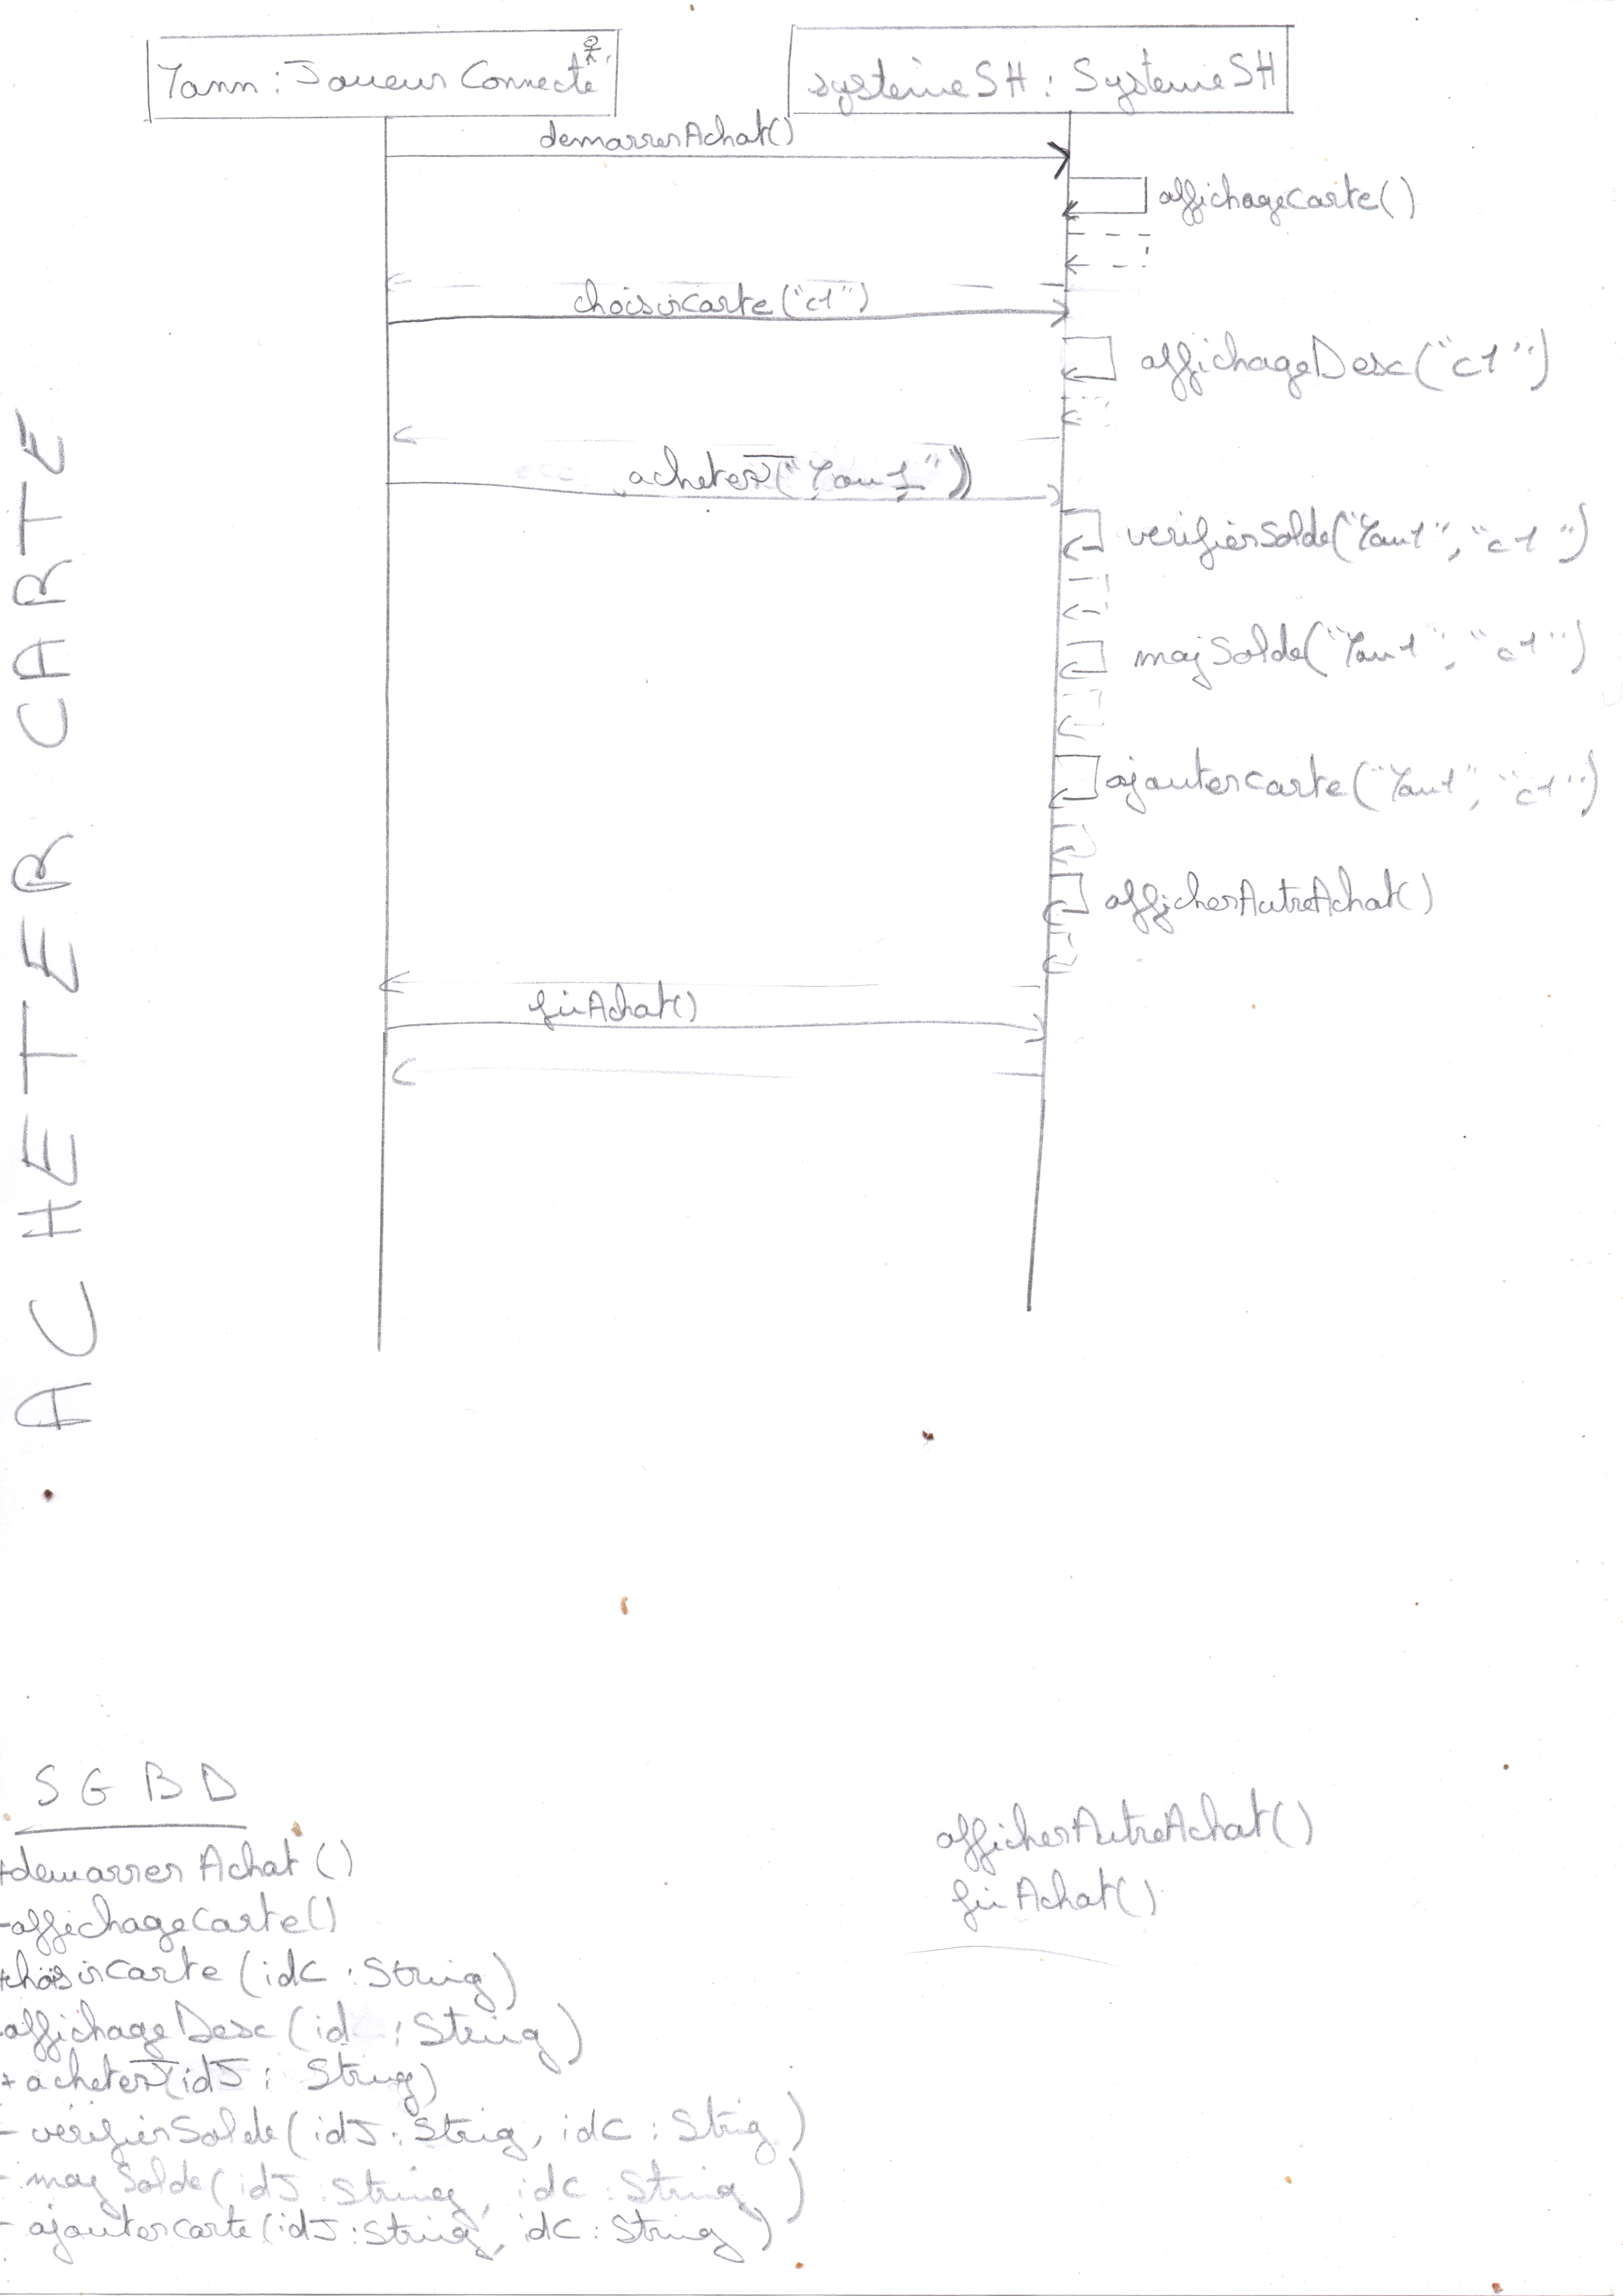 Yann : Joueur Connecté
systèmeSH : SystemeSH
demarrerAchat()
affichageCarte()
choisirCarte ("c1")
affichageDesc("c1")
acheter("Yan1")
verifierSolde("Yan1", "c1")
majSolde("Yan1", "c1")
ajouterCarte("Yan1", "c1")
afficherAutreAchat()
finAchat()
ACHETER CARTE
SGBD
+demarrer Achat ()
-affichageCarte()
+choisirCarte (idC : String)
-affichage Desc (id : String)
+ acheter(idJ : String)
- verifierSolde(idJ : String, idC : String)
- majSolde(idJ : String, idC : String)
- ajouterCarte(idJ : String, idC : String)
afficherAutreAchat()
finAchat()